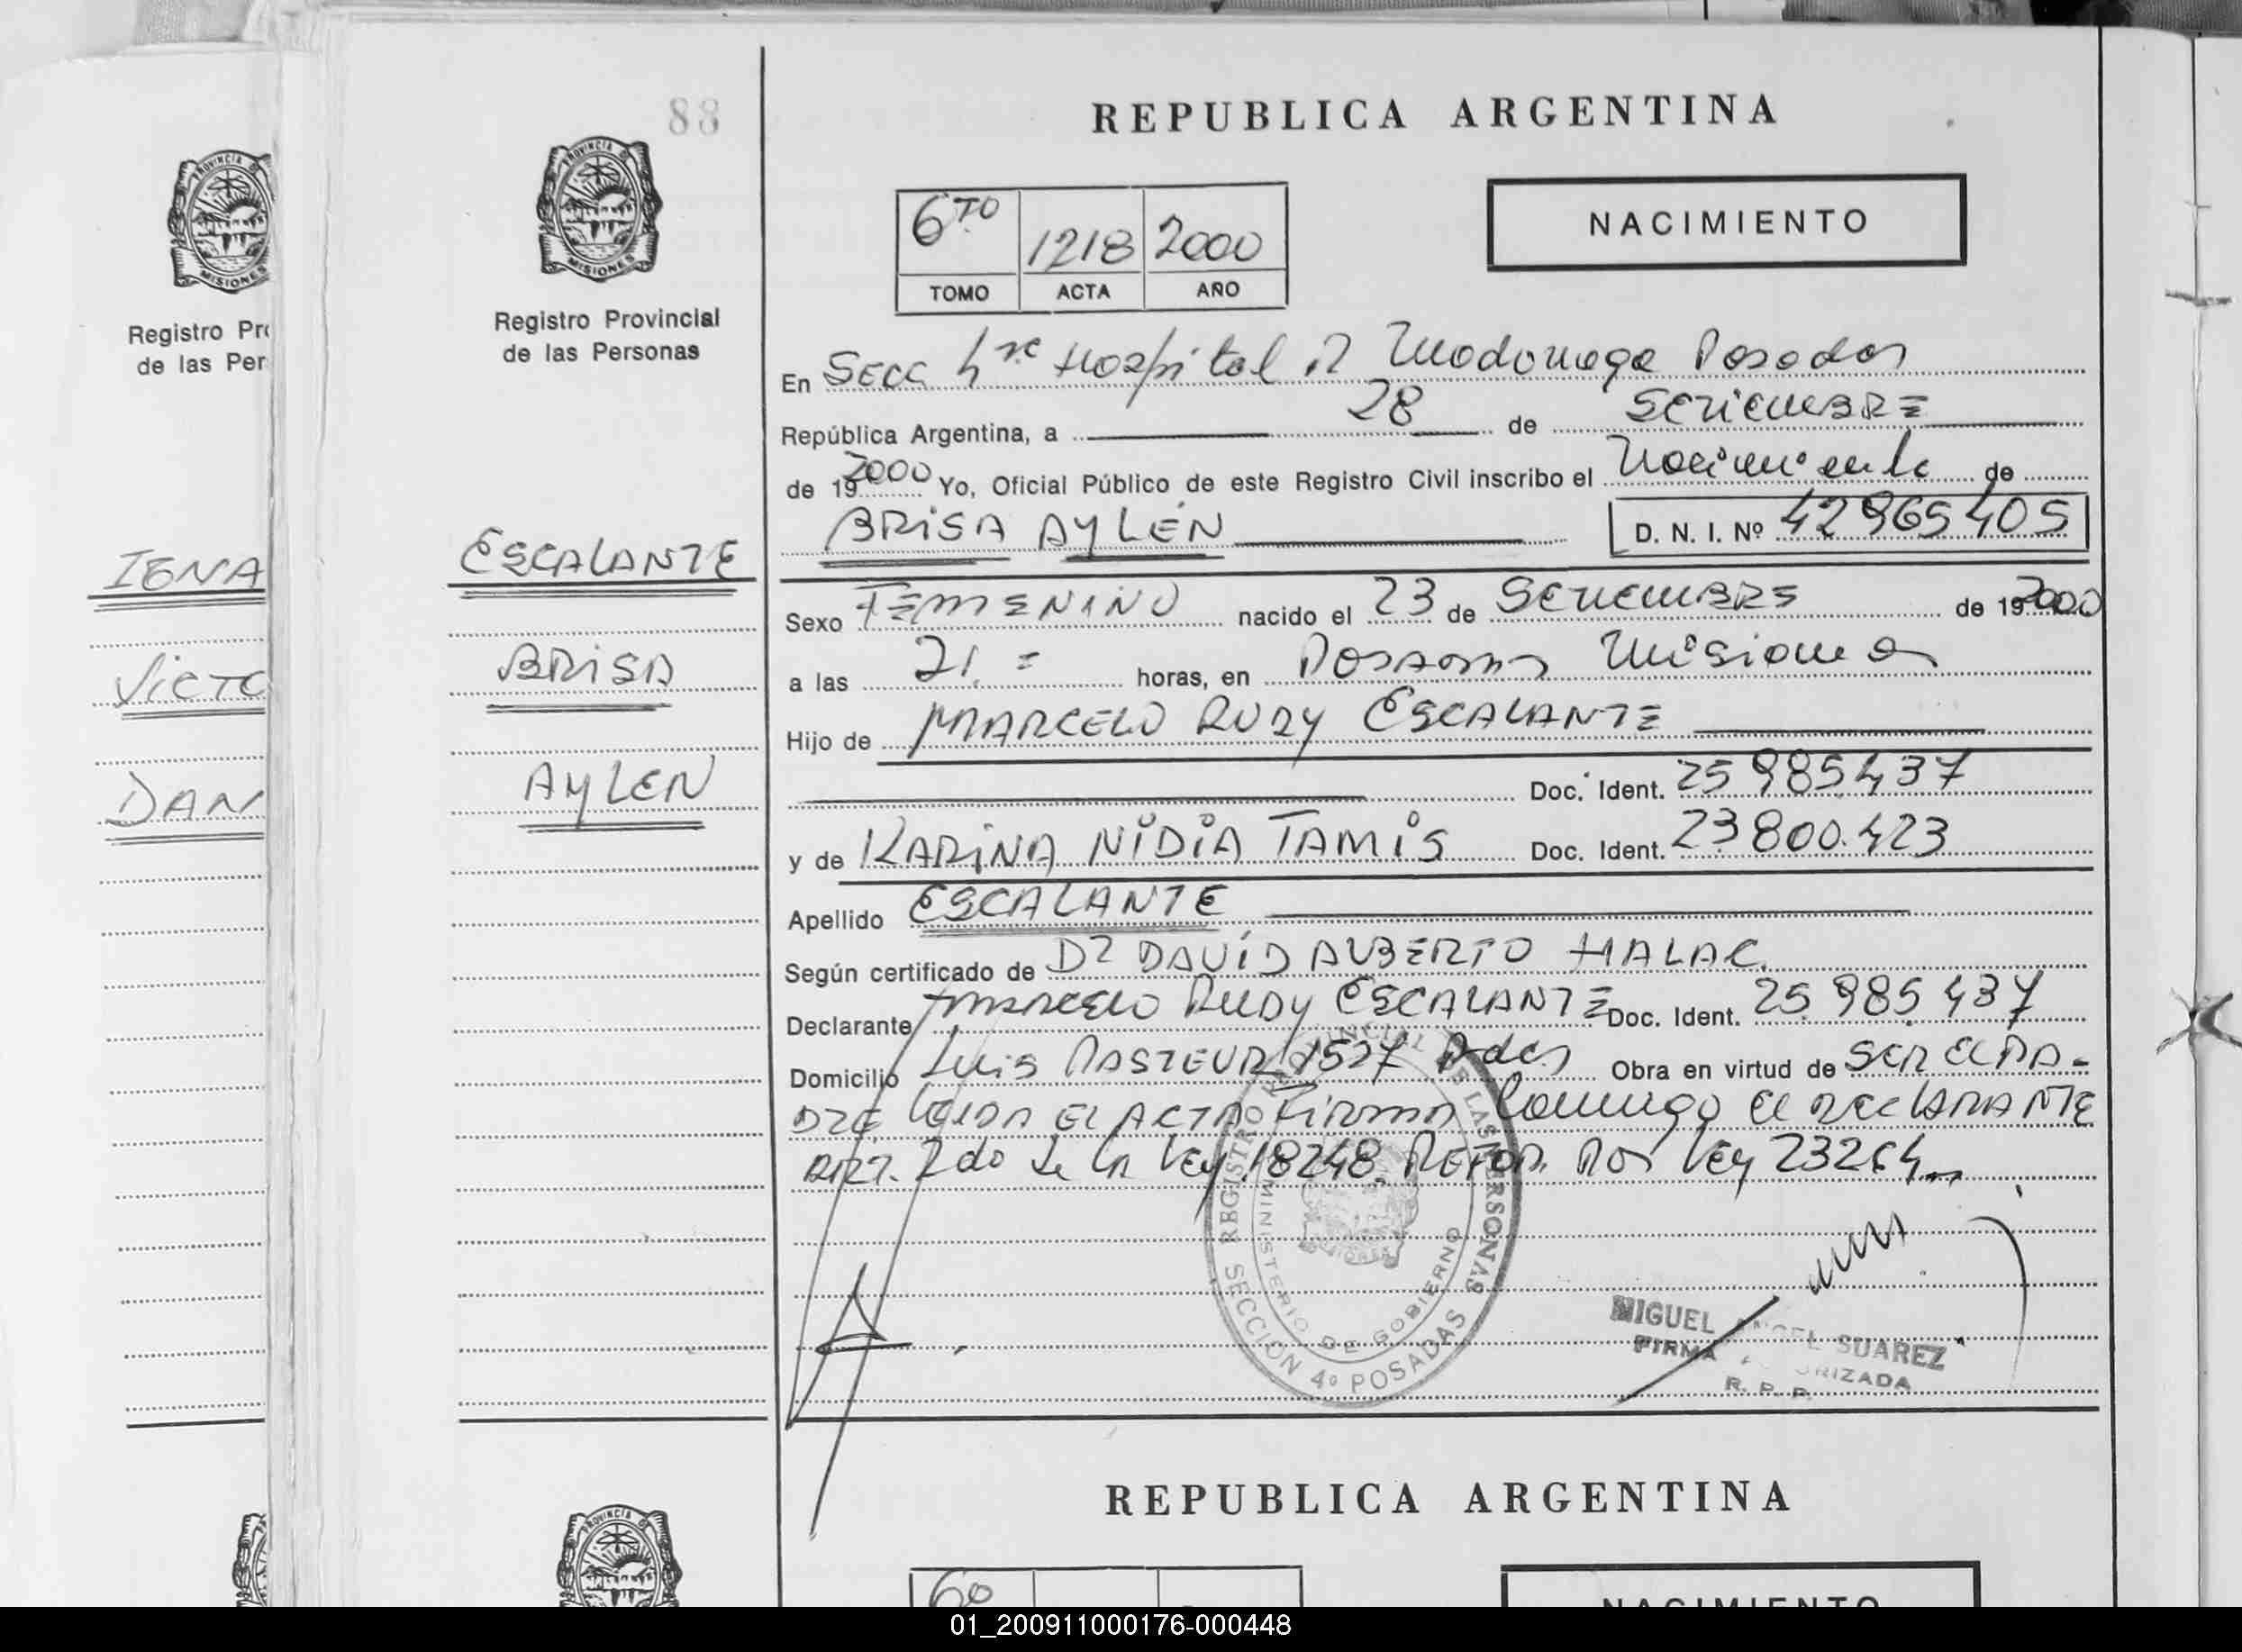 88
REPUBLICA ARGENTINA
NACIMIENTO
6TO 1218 2000
TOMO ACTA AÑO
PROVINCIA DE
MISIONES
Registro Pro
de las Per
PROVINCIA DE
MISIONES
Registro Provincial
de las Personas
IGNA
VICTO
DAN
ESCALANTE
BRISA
AYLEN
En Secc 4ta Hospital R Madariaga Posadas
República Argentina, a 28 de SETIEMBRE
de 19 2000 Yo, Oficial Público de este Registro Civil inscribo el Nacimiento de
BRISA AYLEN D. N. I. Nº 42965405
Sexo FEMENINO nacido el 23 de SETIEMBRE de 19 2000
a las 21.= horas, en Posadas Misiones
Hijo de MARCELO RUDY ESCALANTE
Doc. Ident. 25 985437
y de KARINA NIDIA TAMIS Doc. Ident. 23800.423
Apellido ESCALANTE
Según certificado de Dr DAVID ALBERTO HALAC.
Declarante MARCELO RUDY ESCALANTE Doc. Ident. 25.985.437
Domicilio Luis PASTEUR 1527 Pdas Obra en virtud de SER EL PA-
DRE Leida EL ACTA Firma Conmigo El DECLARANTE
ART. 2do de la Ley 18248. REFOR. POR Ley 23264
REGISTRO PROVINCIAL DE LAS PERSONAS
MINISTERIO DE GOBIERNO
SECCION 4º POSADAS
MIGUEL ANGEL SUAREZ
FIRMA AUTORIZADA
R. P. P.
REPUBLICA ARGENTINA
PROVINCIA DE
6º
NACIMIENTO
01_200911000176-000448